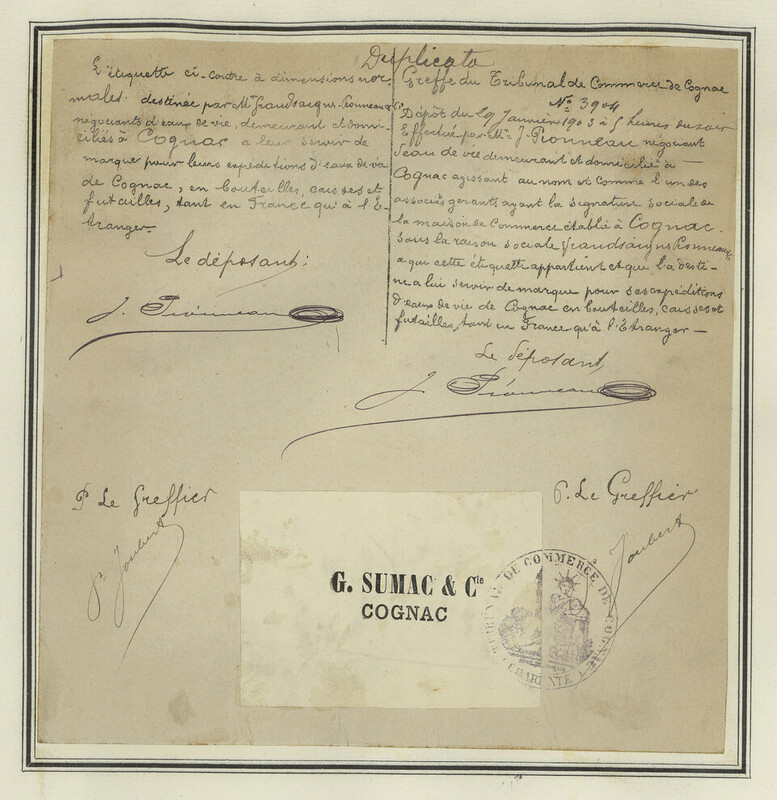 Duplicata
L'étiquette ci-contre à dimensions nor-
males. destinée par Mrs Jeandsaigus-Pionneau & Cie
négociants d'eau de vie, demeurant et domi-
ciliés à Cognac a leur servir de
marque pour leurs expéditions d'eaux de vie
de Cognac, en bouteilles, caisses et
futailles, tant en France qu'à l'E-
tranger.
Le déposant:
J. Pionneau
Greffe du Tribunal de Commerce de Cognac
No 3904
Dépôt du 29 Janvier 1903 à 5 heures du soir
Effectué par Mr J. Pionneau négociant
d'eau de vie demeurant et domicilié à
Cognac agissant au nom et comme l'un des
associés gérants ayant la signature sociale de
la maison de Commerce établie à Cognac.
sous la raison sociale Pionneau
a qui cette étiquette appartient et que l'a desti-
ne a lui servir de marque pour ses expéditions
d'eaux de vie de Cognac en bouteilles, caisses et
futailles, tant en France qu'à l'Etranger —
Le déposant,
J. Pionneau
P. Le Greffier
P. Joubert
P. Le Greffier
Joubert
G. SUMAC & Cie
COGNAC
TRIBUNAL DE COMMERCE DE COGNAC
(CHARENTE)